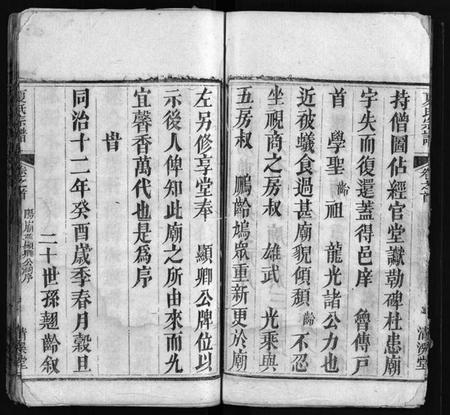 夏氏宗譜
卷之首
清溪堂
持僧圖佔經官堂讞勒碑杜患廟
字失而復還蓋得邑庠 魯傳戸
首 學聖 齡祖 龍光諸公力也
近被蟻食過甚廟貌傾頹 齡不忍
坐視商之房叔 雄武 光乘與
五房叔 鵬齡鳩眾重新更於廟
左另修享堂奉 顯卿公牌位以
示後人俾知此廟之所由來而九
宜馨香萬代也是為序
旹
同治十二年癸酉歲季春月穀旦
二十世孫翹齡叙
夏氏宗譜
卷之首
清溪堂